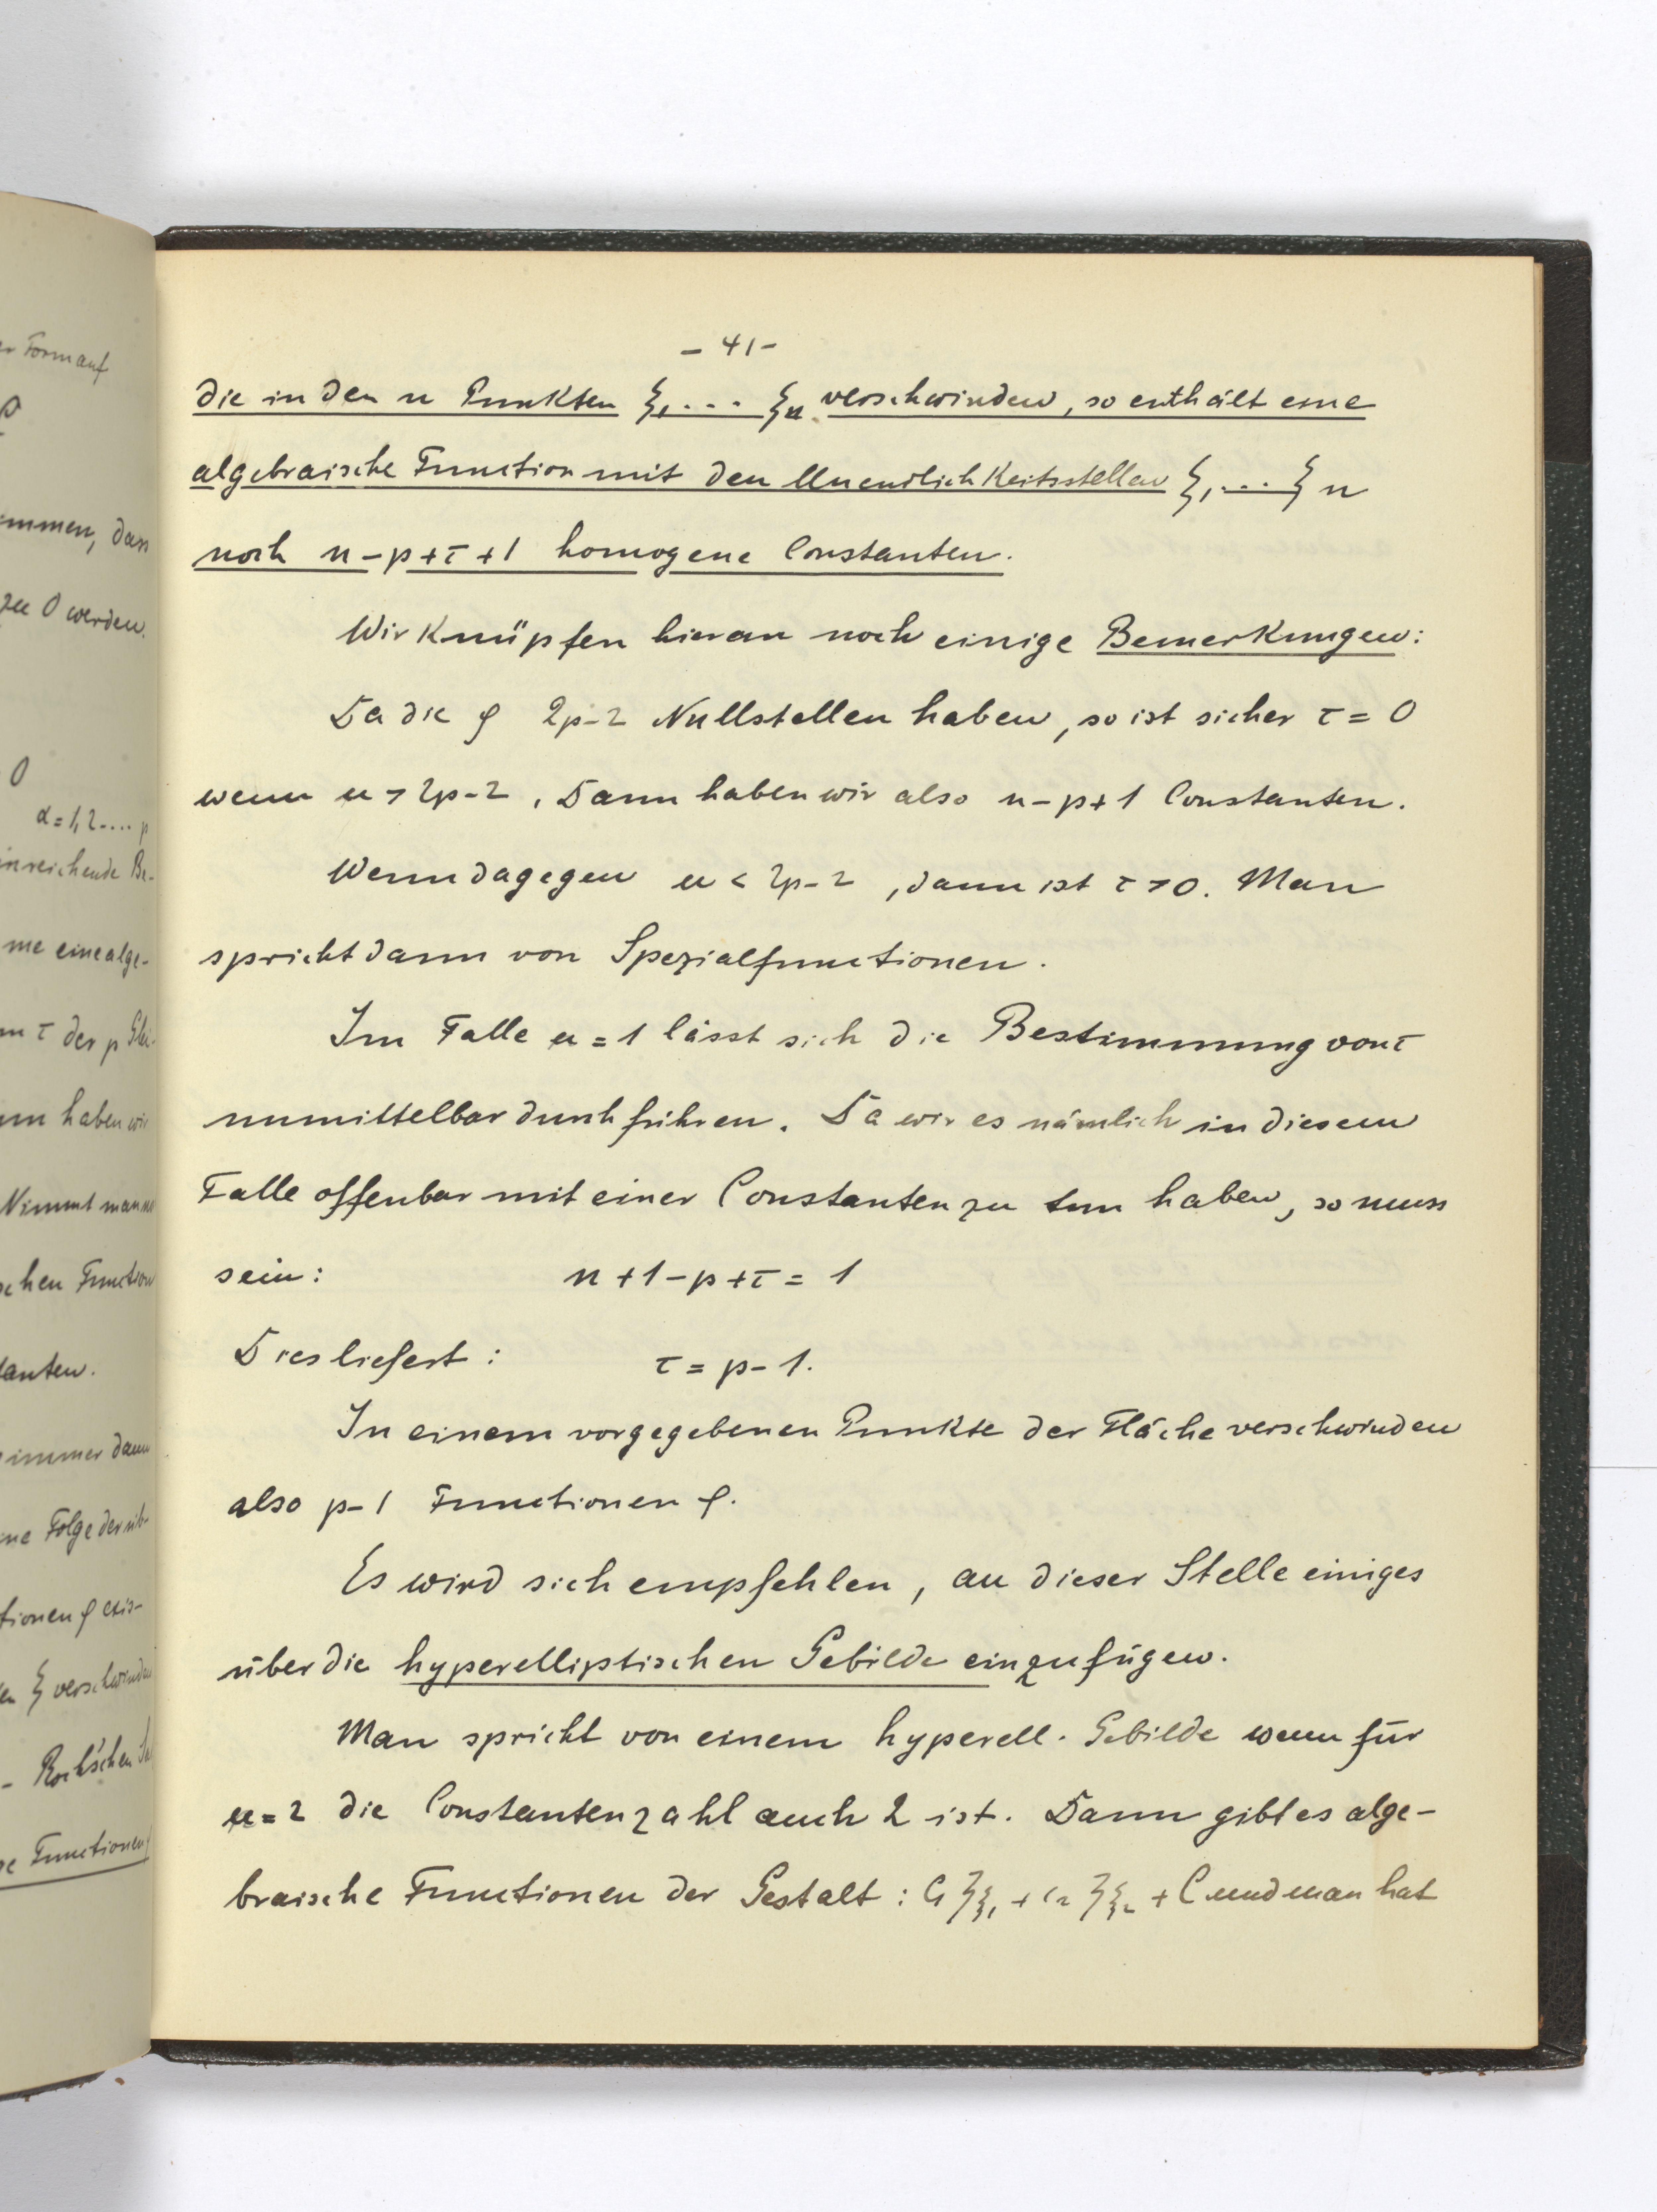 er Form auf
mmen, dass
zu 0 werden.
0
α = 1, 2 .... p
inreichende Be-
me eine alge-
m τ der p Glei-
nn haben wir
Nimmt man
schen Function
tanten.
immer dann
ne Folge der
tionen φ exis-
en ξ verschwinden
- Roch'schen
Functionen
- 41 -
die in den n Punkten ξ₁ .... ξₙ verschwinden, so enthält eine
algebraische Function mit den Unendlichkeitsstellen ξ₁ .... ξₙ
noch n - p + τ + 1 homogene Constanten.
Wir knüpfen hieran noch einige Bemerkungen:
Da die φ 2p-2 Nullstellen haben, so ist sicher τ = 0
wenn n > 2p-2. Dann haben wir also n - p + 1 Constanten.
Wenn dagegen n < 2p-2, dann ist τ > 0. Man
spricht dann von Spezialfunctionen.
Im Falle n = 1 lässt sich die Bestimmung von τ
unmittelbar durchführen. Da wir es nämlich in diesem
Falle offenbar mit einer Constanten zu tun haben, so muss
sein: n + 1 - p + τ = 1
Dies liefert: τ = p - 1.
In einem vorgegebenen Punkte der Fläche verschwinden
also p-1 Functionen φ.
Es wird sich empfehlen, an dieser Stelle einiges
über die hyperelliptischen Gebilde einzufügen.
Man spricht von einem hyperell. Gebilde wenn für
n = 2 die Constantenzahl auch 2 ist. Dann gibt es alge-
braische Functionen der Gestalt: C₁ ζ_ξ₁ + C₂ ζ_ξ₂ + C und man hat